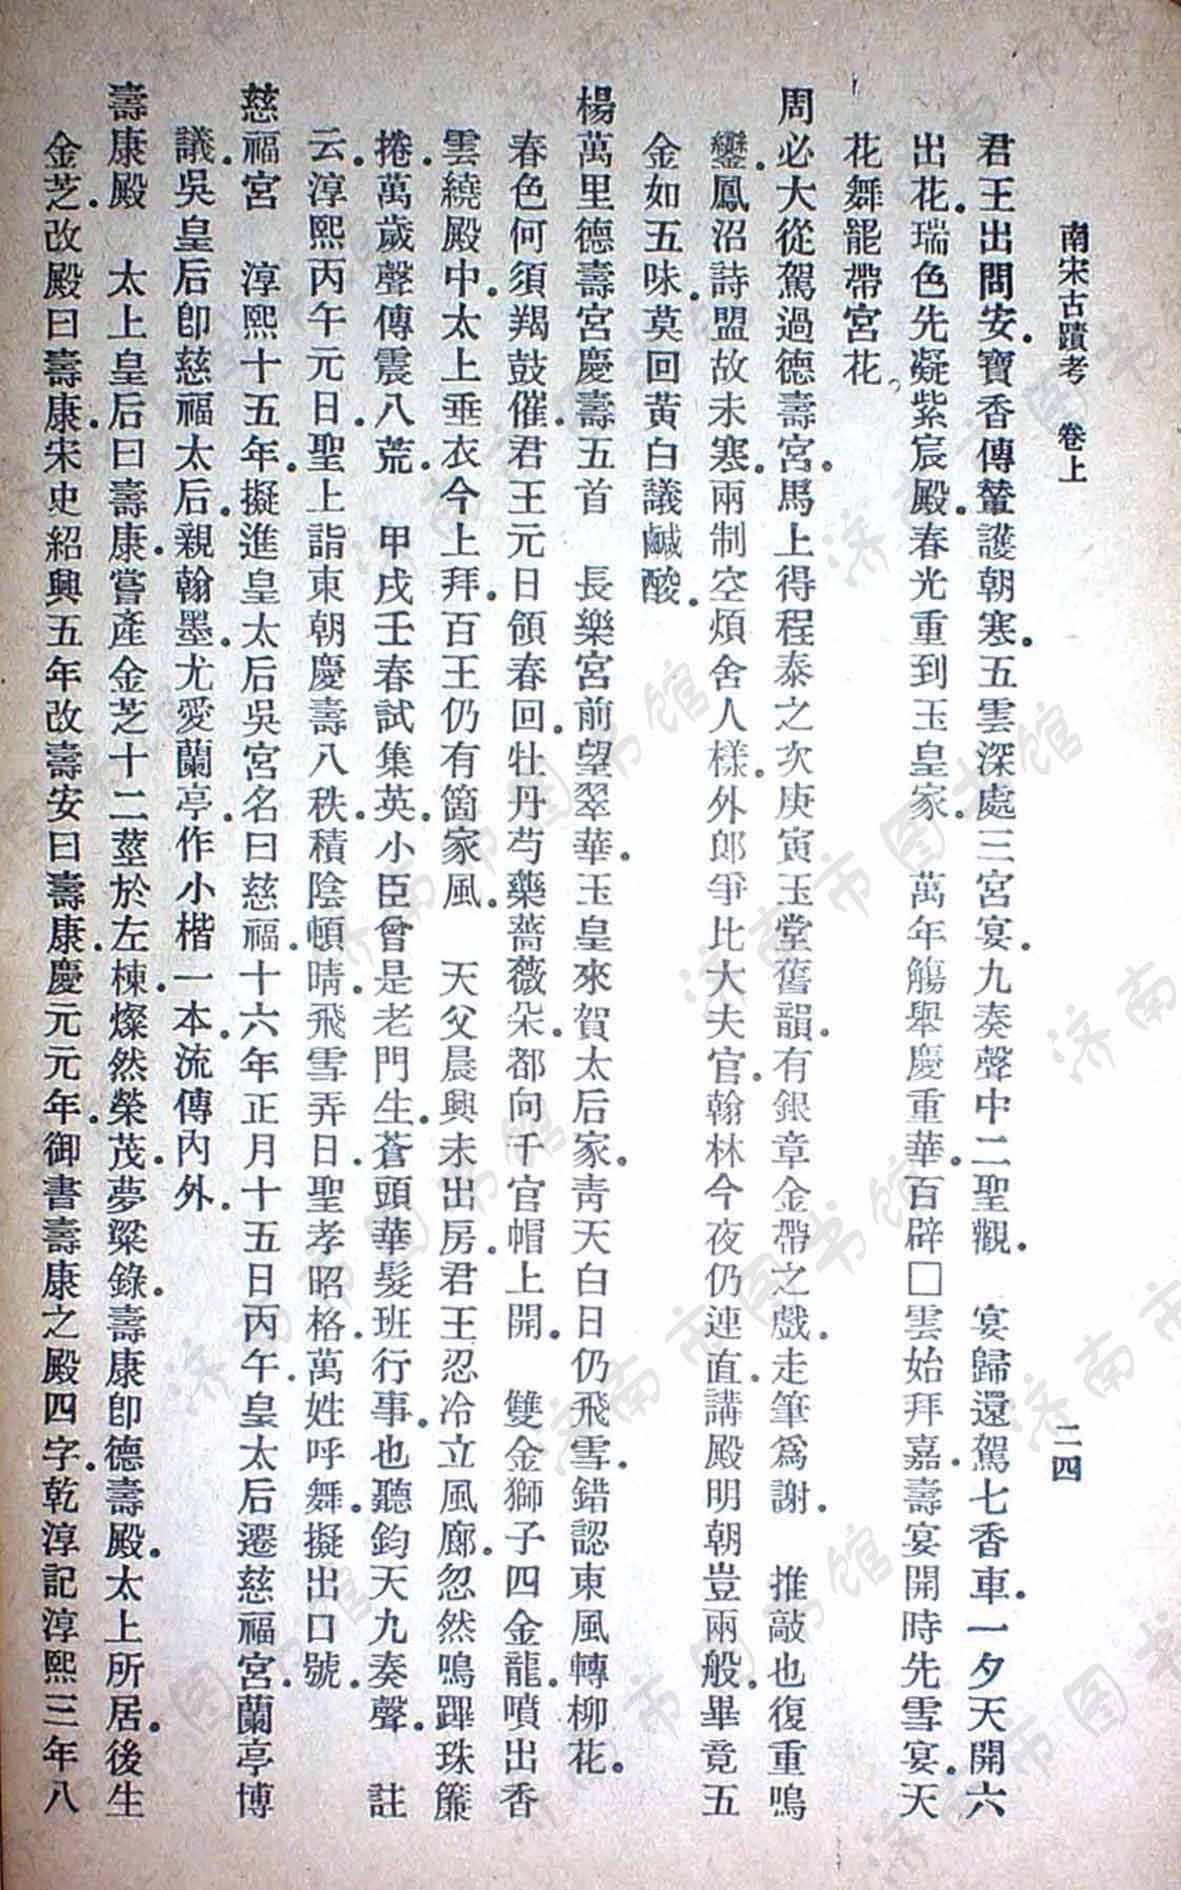 南宋古蹟考 卷上 二四
君王出問安寶香傳輦護朝寒五雲深處三宮宴九奏聲中二聖觀 宴歸還駕七香車一夕天開六
出花瑞色先凝紫宸殿春光重到玉皇家萬年觴舉慶重華百辟□雲始拜嘉壽宴開時先雪宴天
花舞罷帶宮花
周必大從駕過德壽宮馬上得程泰之次庚寅玉堂舊韻有銀章金帶之戲走筆爲謝 推敲也復重鳴
鑾鳳沼詩盟故未寒兩制空煩舍人樣外郎爭比大夫官翰林今夜仍連直講殿明朝豈兩般畢竟五
金如五味莫回黃白議鹹酸
楊萬里德壽宮慶壽五首 長樂宮前望翠華玉皇來賀太后家靑天白日仍飛雪錯認東風轉柳花
春色何須羯鼓催君王元日領春回牡丹芍藥薔薇朵都向千官帽上開 雙金獅子四金龍噴出香
雲繞殿中太上垂衣今上拜百王仍有箇家風 天父晨興未出房君王忍冷立風廊忽然鳴蹕珠簾
捲萬歲聲傳震八荒 甲戌壬春試集英小臣曾是老門生蒼頭華髮班行事也聽鈞天九奏聲 註
云淳熙丙午元日聖上詣東朝慶壽八秩積陰頓晴飛雪弄日聖孝昭格萬姓呼舞擬出口號
慈福宮 淳熙十五年擬進皇太后吳宮名曰慈福十六年正月十五日丙午皇太后遷慈福宮蘭亭博
議吳皇后卽慈福太后親翰墨尤愛蘭亭作小楷一本流傳內外
壽康殿 太上皇后曰壽康嘗產金芝十二莖於左棟燦然榮茂夢粱錄壽康卽德壽殿太上所居後生
金芝改殿曰壽康宋史紹興五年改壽安曰壽康慶元元年御書壽康之殿四字乾淳記淳熙三年八